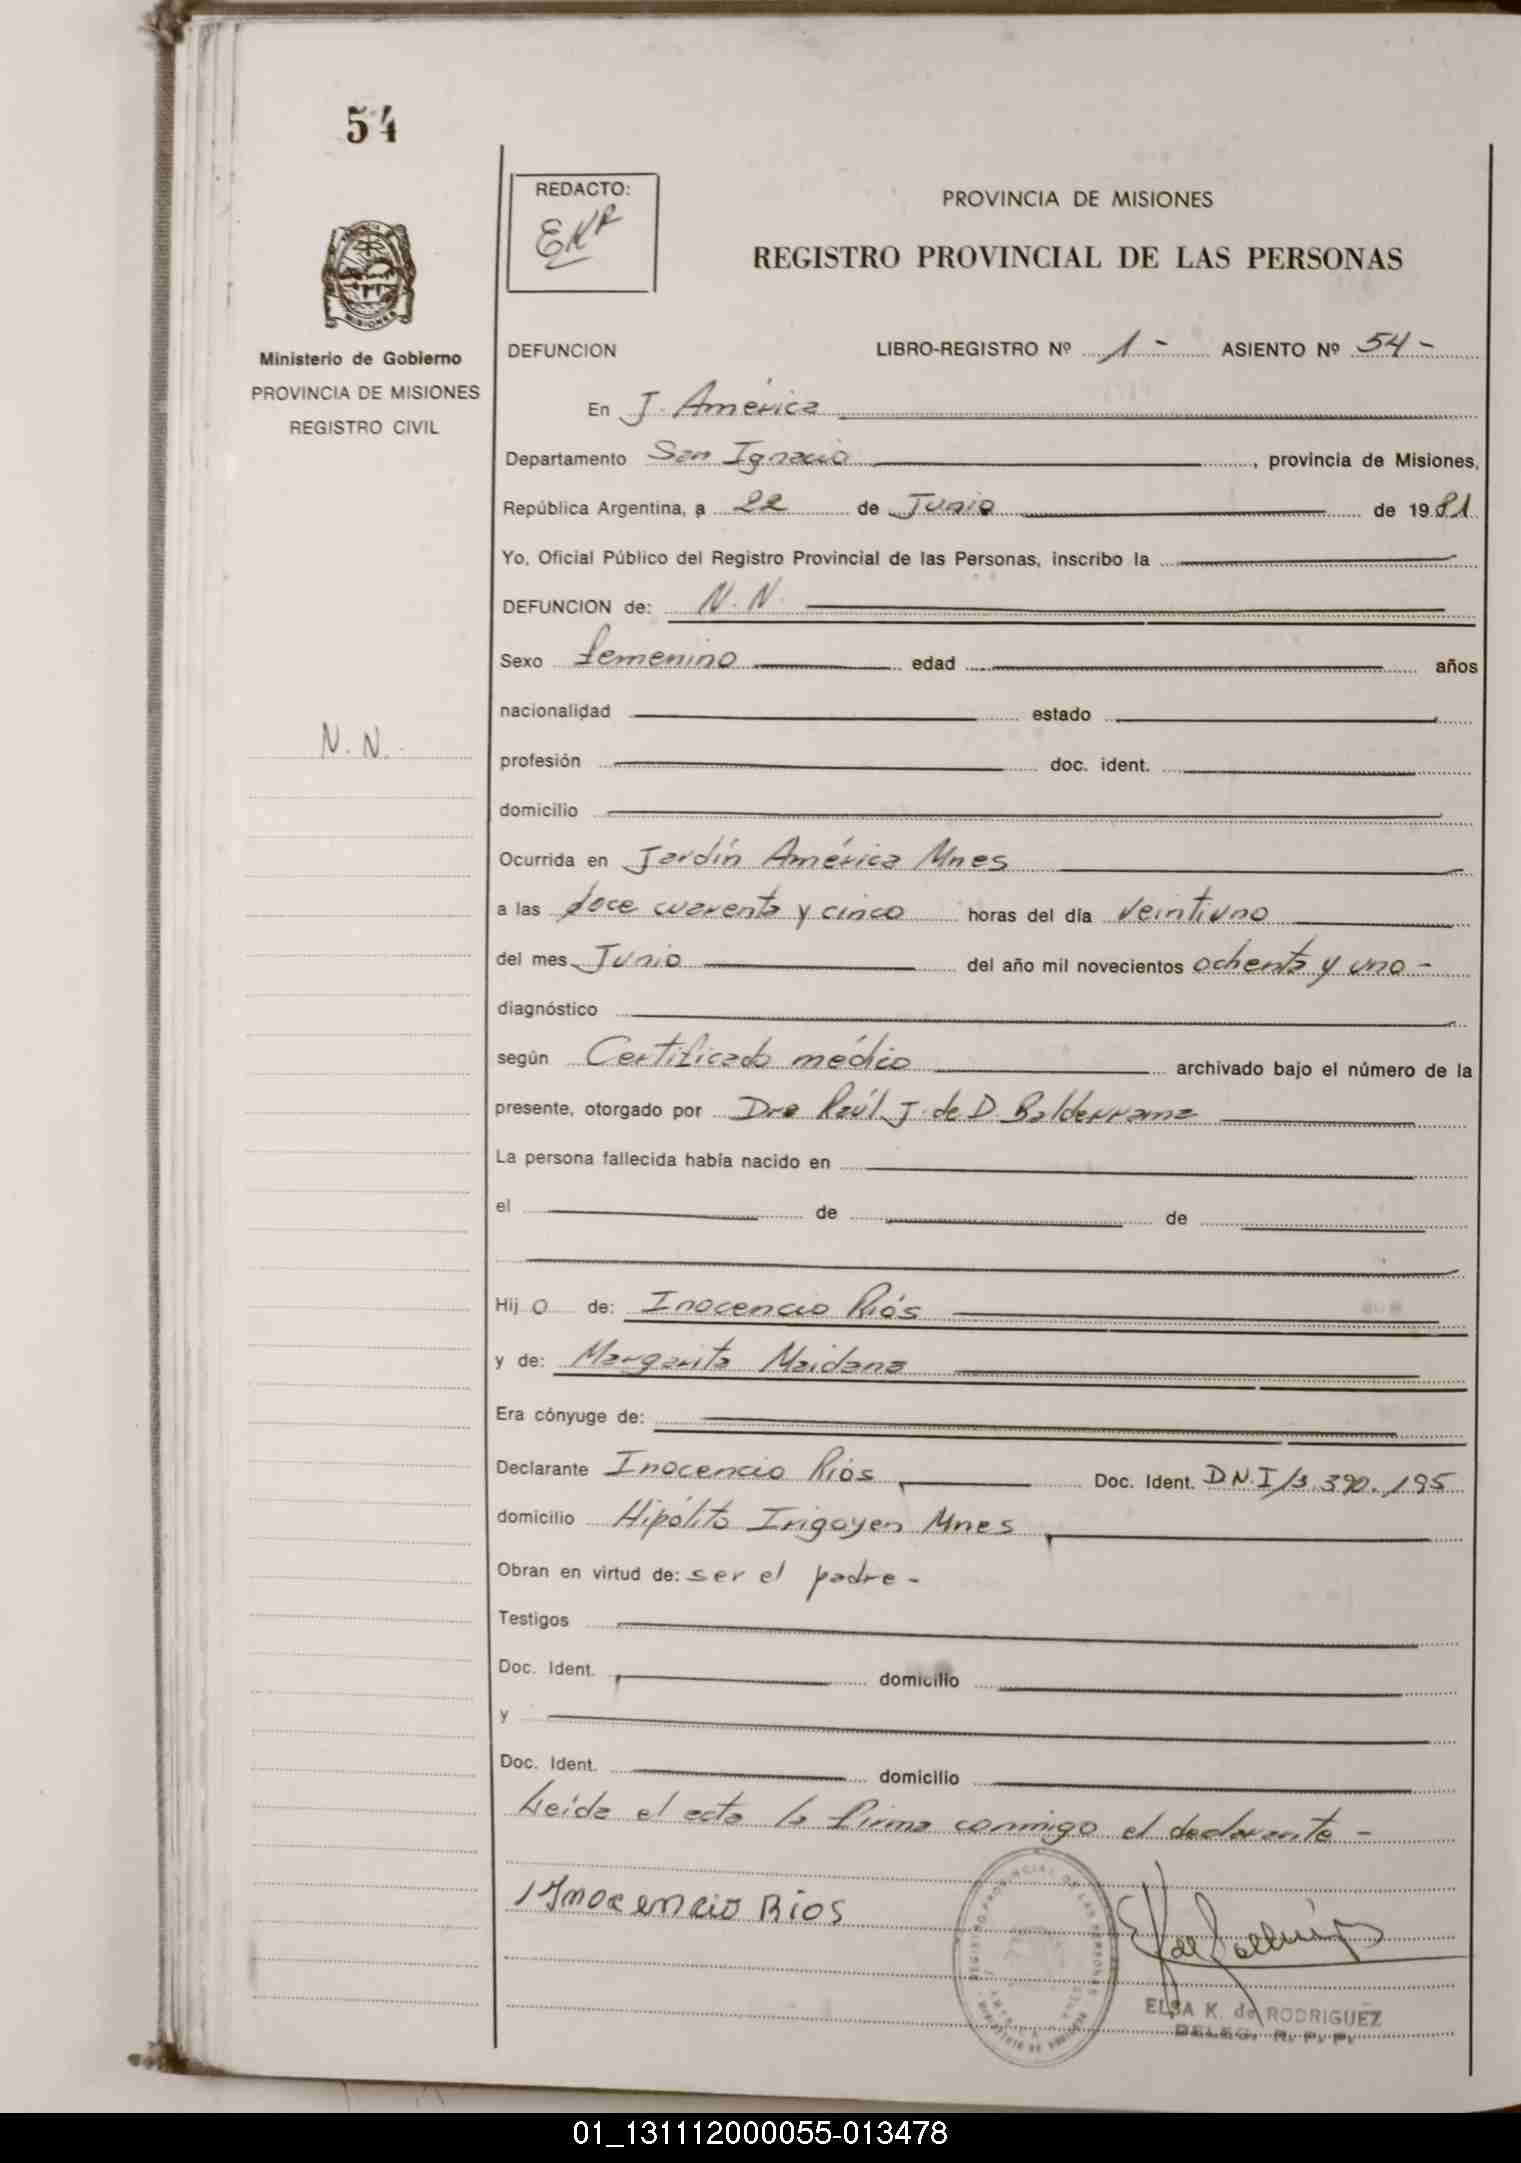 54
REDACTO:
EKR
PROVINCIA DE MISIONES
REGISTRO PROVINCIAL DE LAS PERSONAS
MISIONES
Ministerio de Gobierno
PROVINCIA DE MISIONES
REGISTRO CIVIL
DEFUNCION LIBRO-REGISTRO Nº 1 - ASIENTO Nº 54 -
En J. América
Departamento San Ignacio, provincia de Misiones,
República Argentina, a 22 de Junio de 1981
Yo, Oficial Público del Registro Provincial de las Personas, inscribo la
DEFUNCION de: N. N.
Sexo femenino edad años
nacionalidad estado
N. N.
profesión doc. ident.
domicilio
Ocurrida en Jardín América Mnes
a las doce cuarenta y cinco horas del día veintiuno
del mes Junio del año mil novecientos ochenta y uno -
diagnóstico
según Certificado médico archivado bajo el número de la
presente, otorgado por Dro Raúl J. de D. Balderrama
La persona fallecida había nacido en
el de de
Hij o de: Inocencio Ríos
y de: Margarita Maidana
Era cónyuge de:
Declarante Inocencio Ríos Doc. Ident. D.N.I 13.390.195
domicilio Hipólito Irigoyen Mnes
Obran en virtud de: ser el padre -
Testigos
Doc. Ident. domicilio
y
Doc. Ident. domicilio
Leída el acta la firma conmigo el declarante -
Inocencio Rios
REGISTRO PROVINCIAL DE LAS PERSONAS
ELSA K. de RODRIGUEZ
DELEG. R. P. P.
01_131112000055-013478